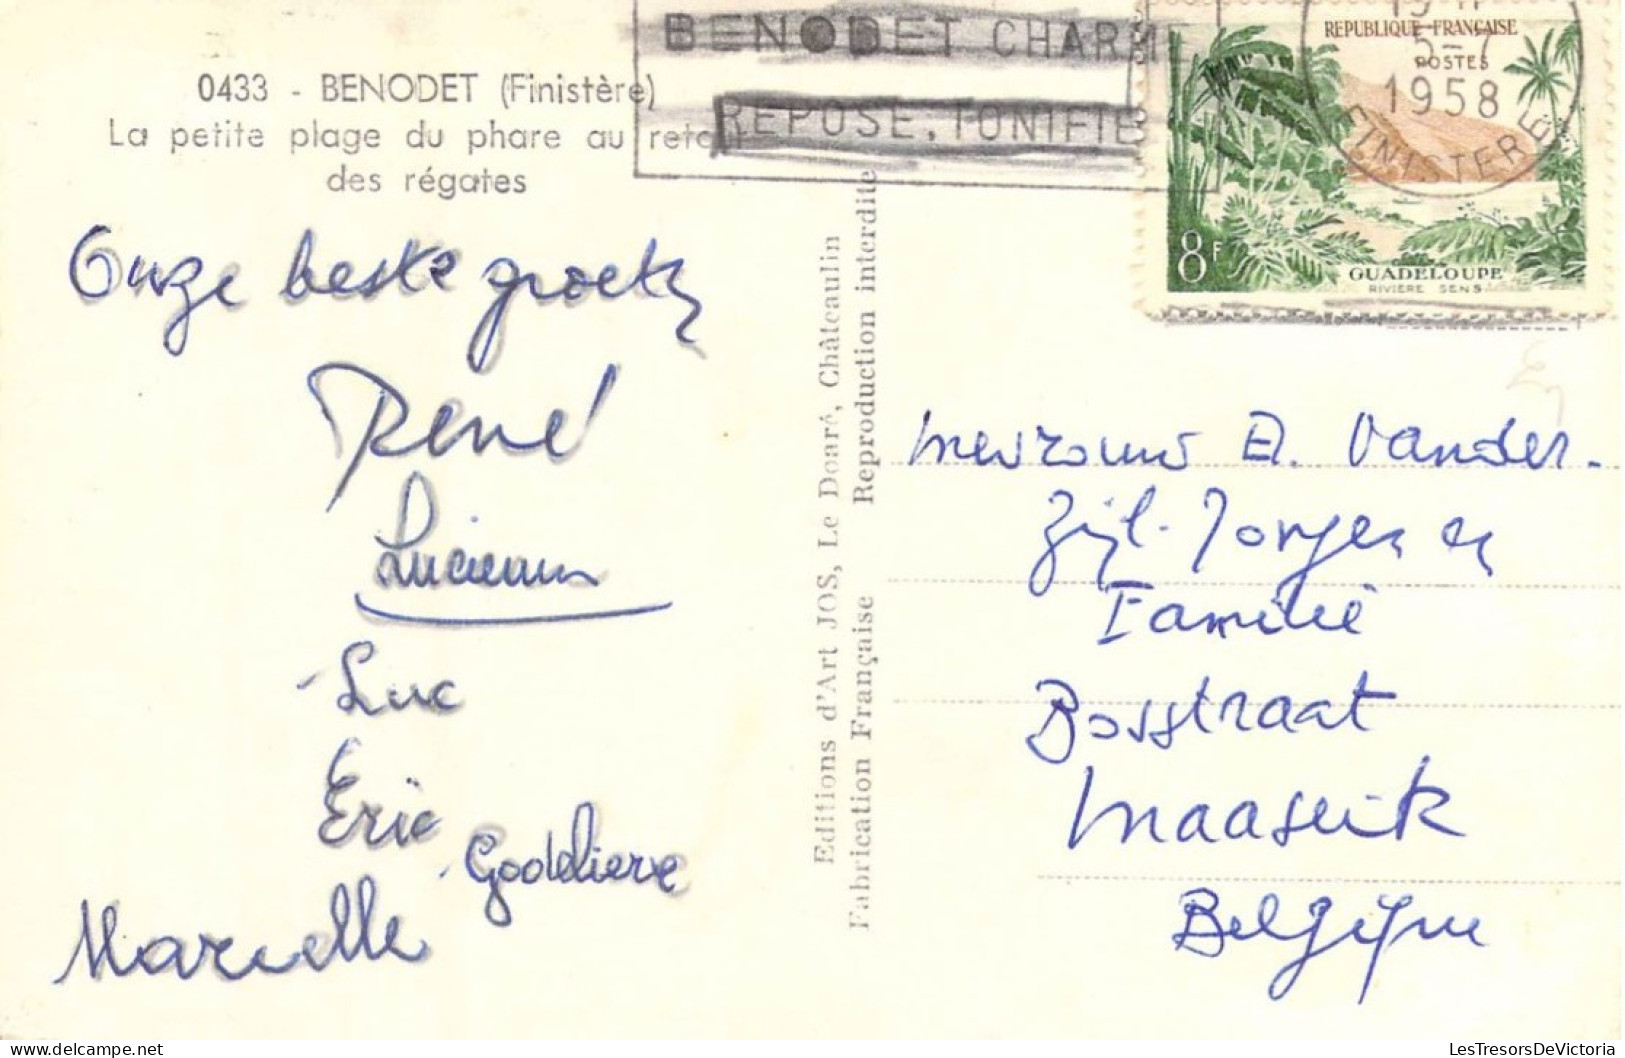 0433 - BENODET (Finistère)
La petite plage du phare au retour
des régates
BENODET CHARME
REPOSE, TONIFIE
REPUBLIQUE FRANÇAISE
POSTES
5-7
1958
FINISTERE
8F
GUADELOUPE
RIVIERE SENS
Onze beste groeten
René
Lucienne
Luc
Eric
Godelieve
Marcelle
Editions d'Art JOS, Le Doaré, Châteaulin
Fabrication Française Reproduction interdite
Mevrouw A. Vander.
Zijl-Jorgen en
Familie
Bosstraat
Maaseik
Belgique
LesTresorsDeVictoria.com